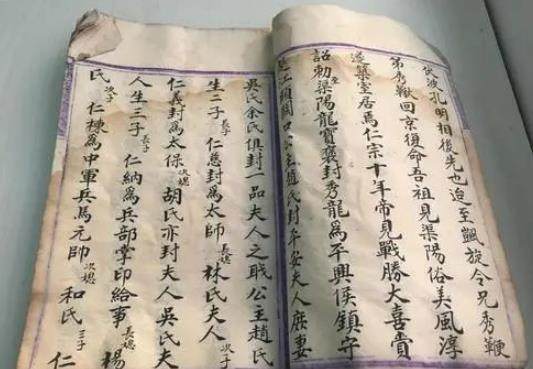 伏波孔明相後先也迨至旋令兄秀鞭
第秀猷回京復命吾祖見渠陽俗美風淳
遂築室居焉仁宗十年帝見戰勝大喜賁
詔勅至渠陽龍寶褒封秀龍爲平興侯鎮守
江頭關口公主趙氏封平安夫人庶妻
吳氏余氏俱封一品夫人之職公主趙氏
生二子長子仁慈封爲太師長媳林氏夫人次子
仁義封爲太保次媳胡氏亦封夫人吳氏夫
人生三子長子仁納爲兵部掌印給事長媳楊
氏次子仁棟爲中軍兵馬元帥次媳和氏三子仁